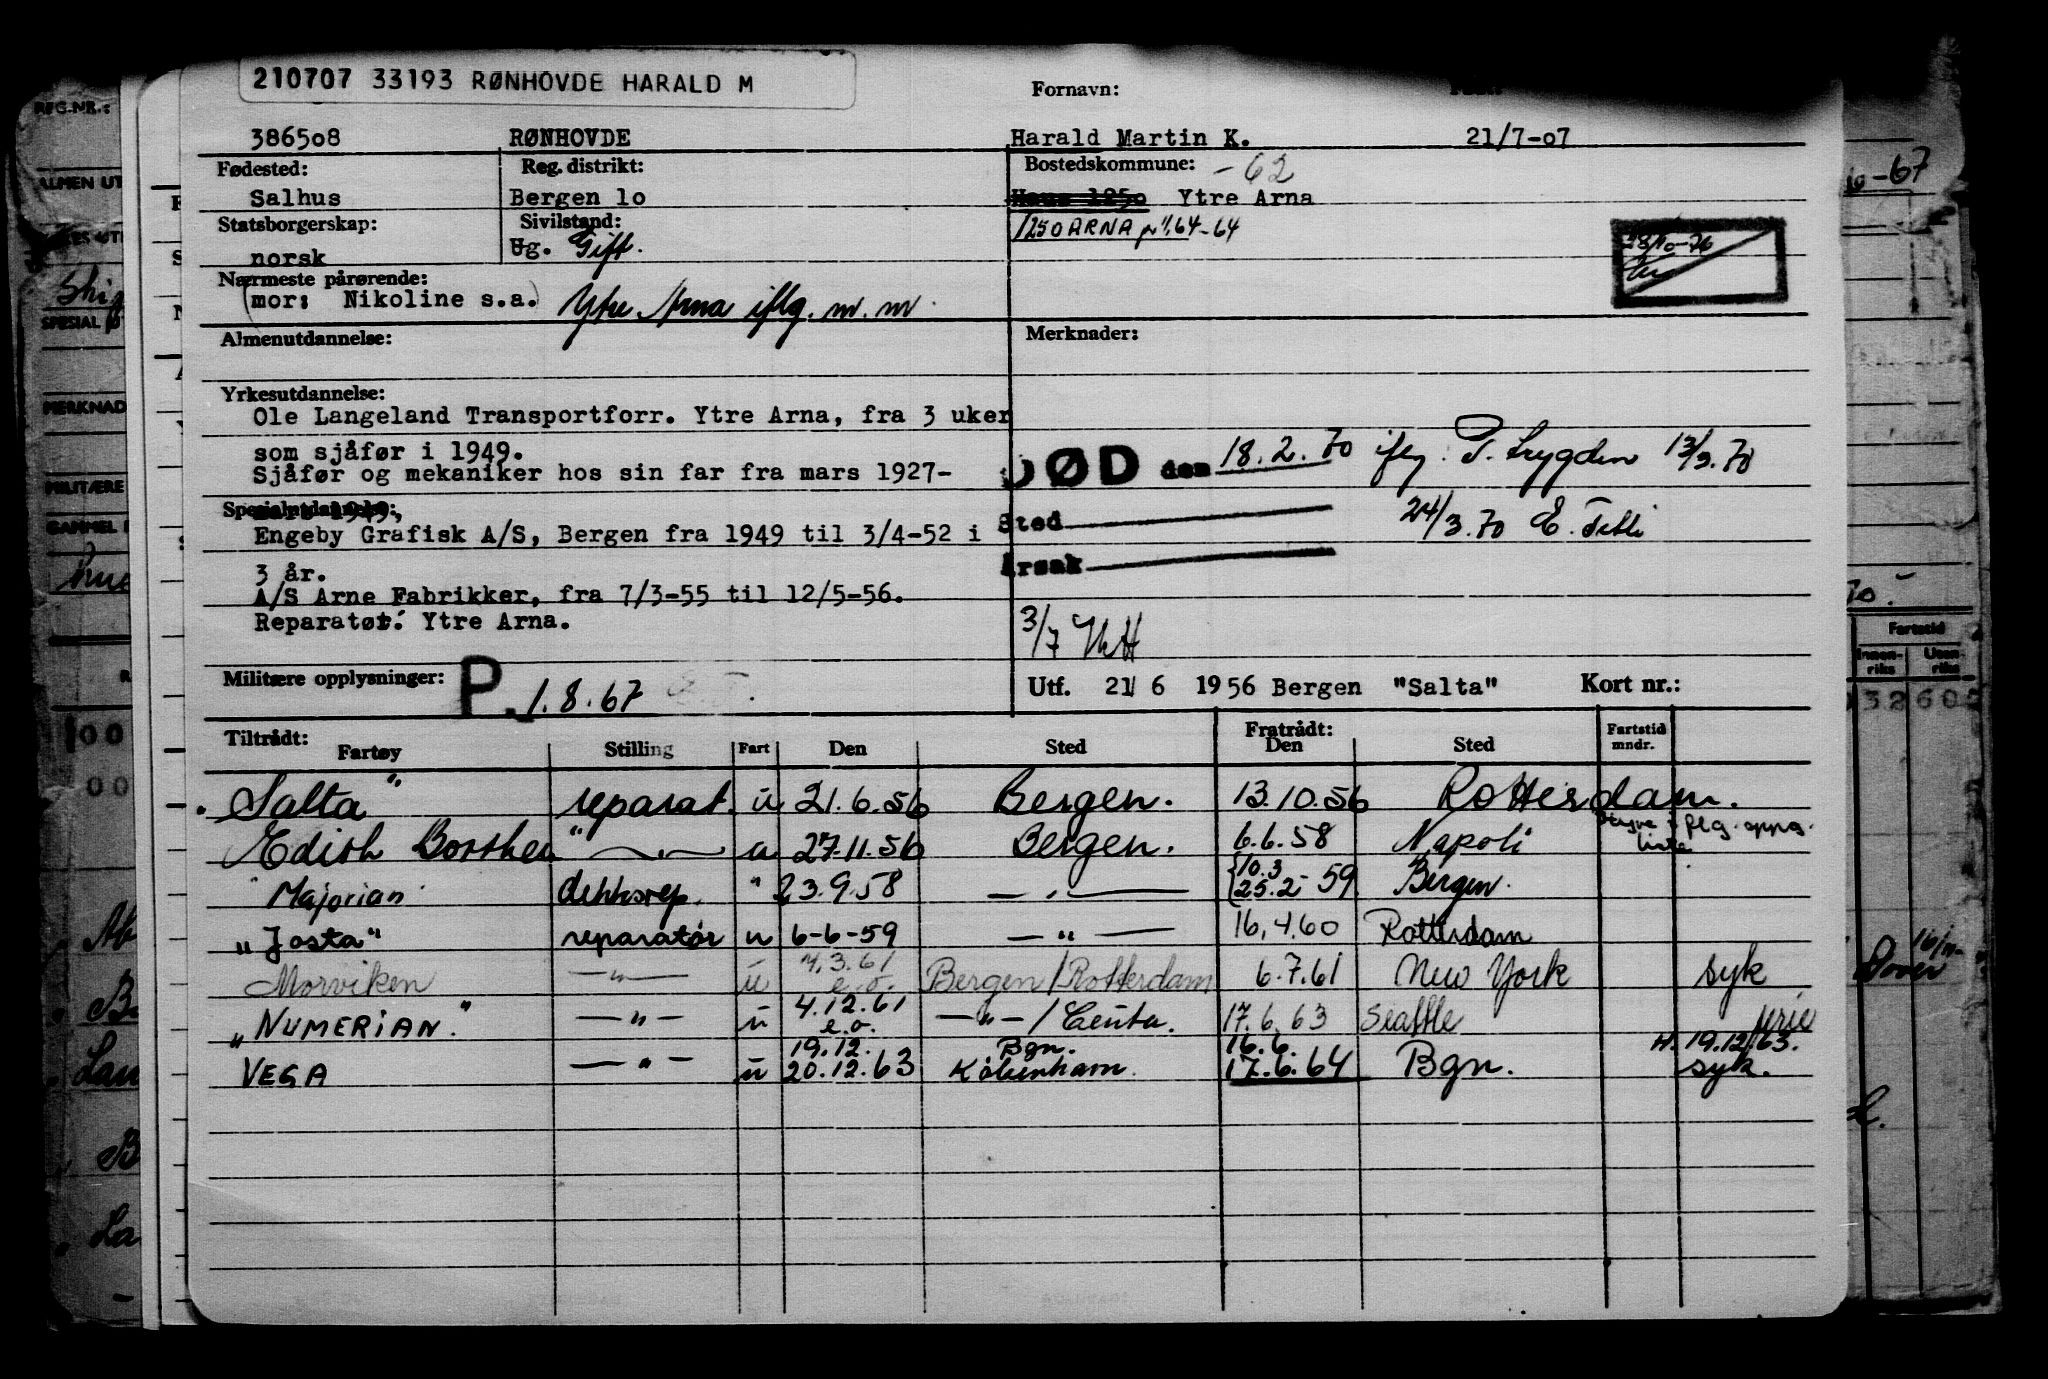 210707 33193 RØNHOVDE HARALD M
Fornavn:
386508 RØNHOVDE Harald Martin K. 21/7-07
Fødested: Reg. distrikt: Bostedskommune: -62
Salhus Bergen 10 Haus 1250 Ytre Arna
Statsborgerskap: Sivilstand: 1250 ARNA 1/1.64-64
norsk Ug. Gift.
28/10-76
Nærmeste pårørende:
(mor: Nikoline s.a.) Ytre Arna iflg. m. m
Almenutdannelse: Merknader:
Yrkesutdannelse:
Ole Langeland Transportforr. Ytre Arna, fra 3 uker
som sjåfør i 1949.
Sjåfør og mekaniker hos sin far fra mars 1927-
DØD den 18.2.70 iflg. 13/3.70
Spesialutdannelse:
1949,
Engeby Grafisk A/S, Bergen fra 1949 til 3/4-52 i
Sted 24/3.70 E.
3 år.
Årsak
A/S Arne Fabrikker, fra 7/3-55 til 12/5-56.
Reparatør. Ytre Arna.
3/7
Militære opplysninger: P. 1.8.67
Utf. 21/6 1956 Bergen "Salta" Kort nr.:
Tiltrådt: Fratrådt: Fartstid
Fartøy Stilling Fart Den Sted Den Sted mndr.
Salta" reparat. u 21.6.56 Bergen. 13.10.56 Rotterdam.
Edith Borthen " u 27.11.56 Bergen. 6.6.58 Napoli flg. oppg. liste
"Majorian" dekksrep. " 23.9.58 — " — {10.3 25.2-59 Bergen.
"Josta" reparatør u 6-6-59 — " — 16.4.60 Rotterdam
Morviken — " — u 4.3.61 e.o. Bergen/Rotterdam 6.7.61 New York syk
"NUMERIAN." — " — u 4.12.61 e.o. — " — /Ceuta. 17.6.63 Seattle ferie
H. 19.12.63.
VEGA — " — u 19.12. 20.12.63 Bgn. København. 16.6. 17.6.64 Bgn. syk.
REG.NR.:
ALMEN UT
SPESIAL
MERKNAD
MILITÆRE
GAMMEL
-67
70.
Fartstid
Innen-riks Uten-riks
32605